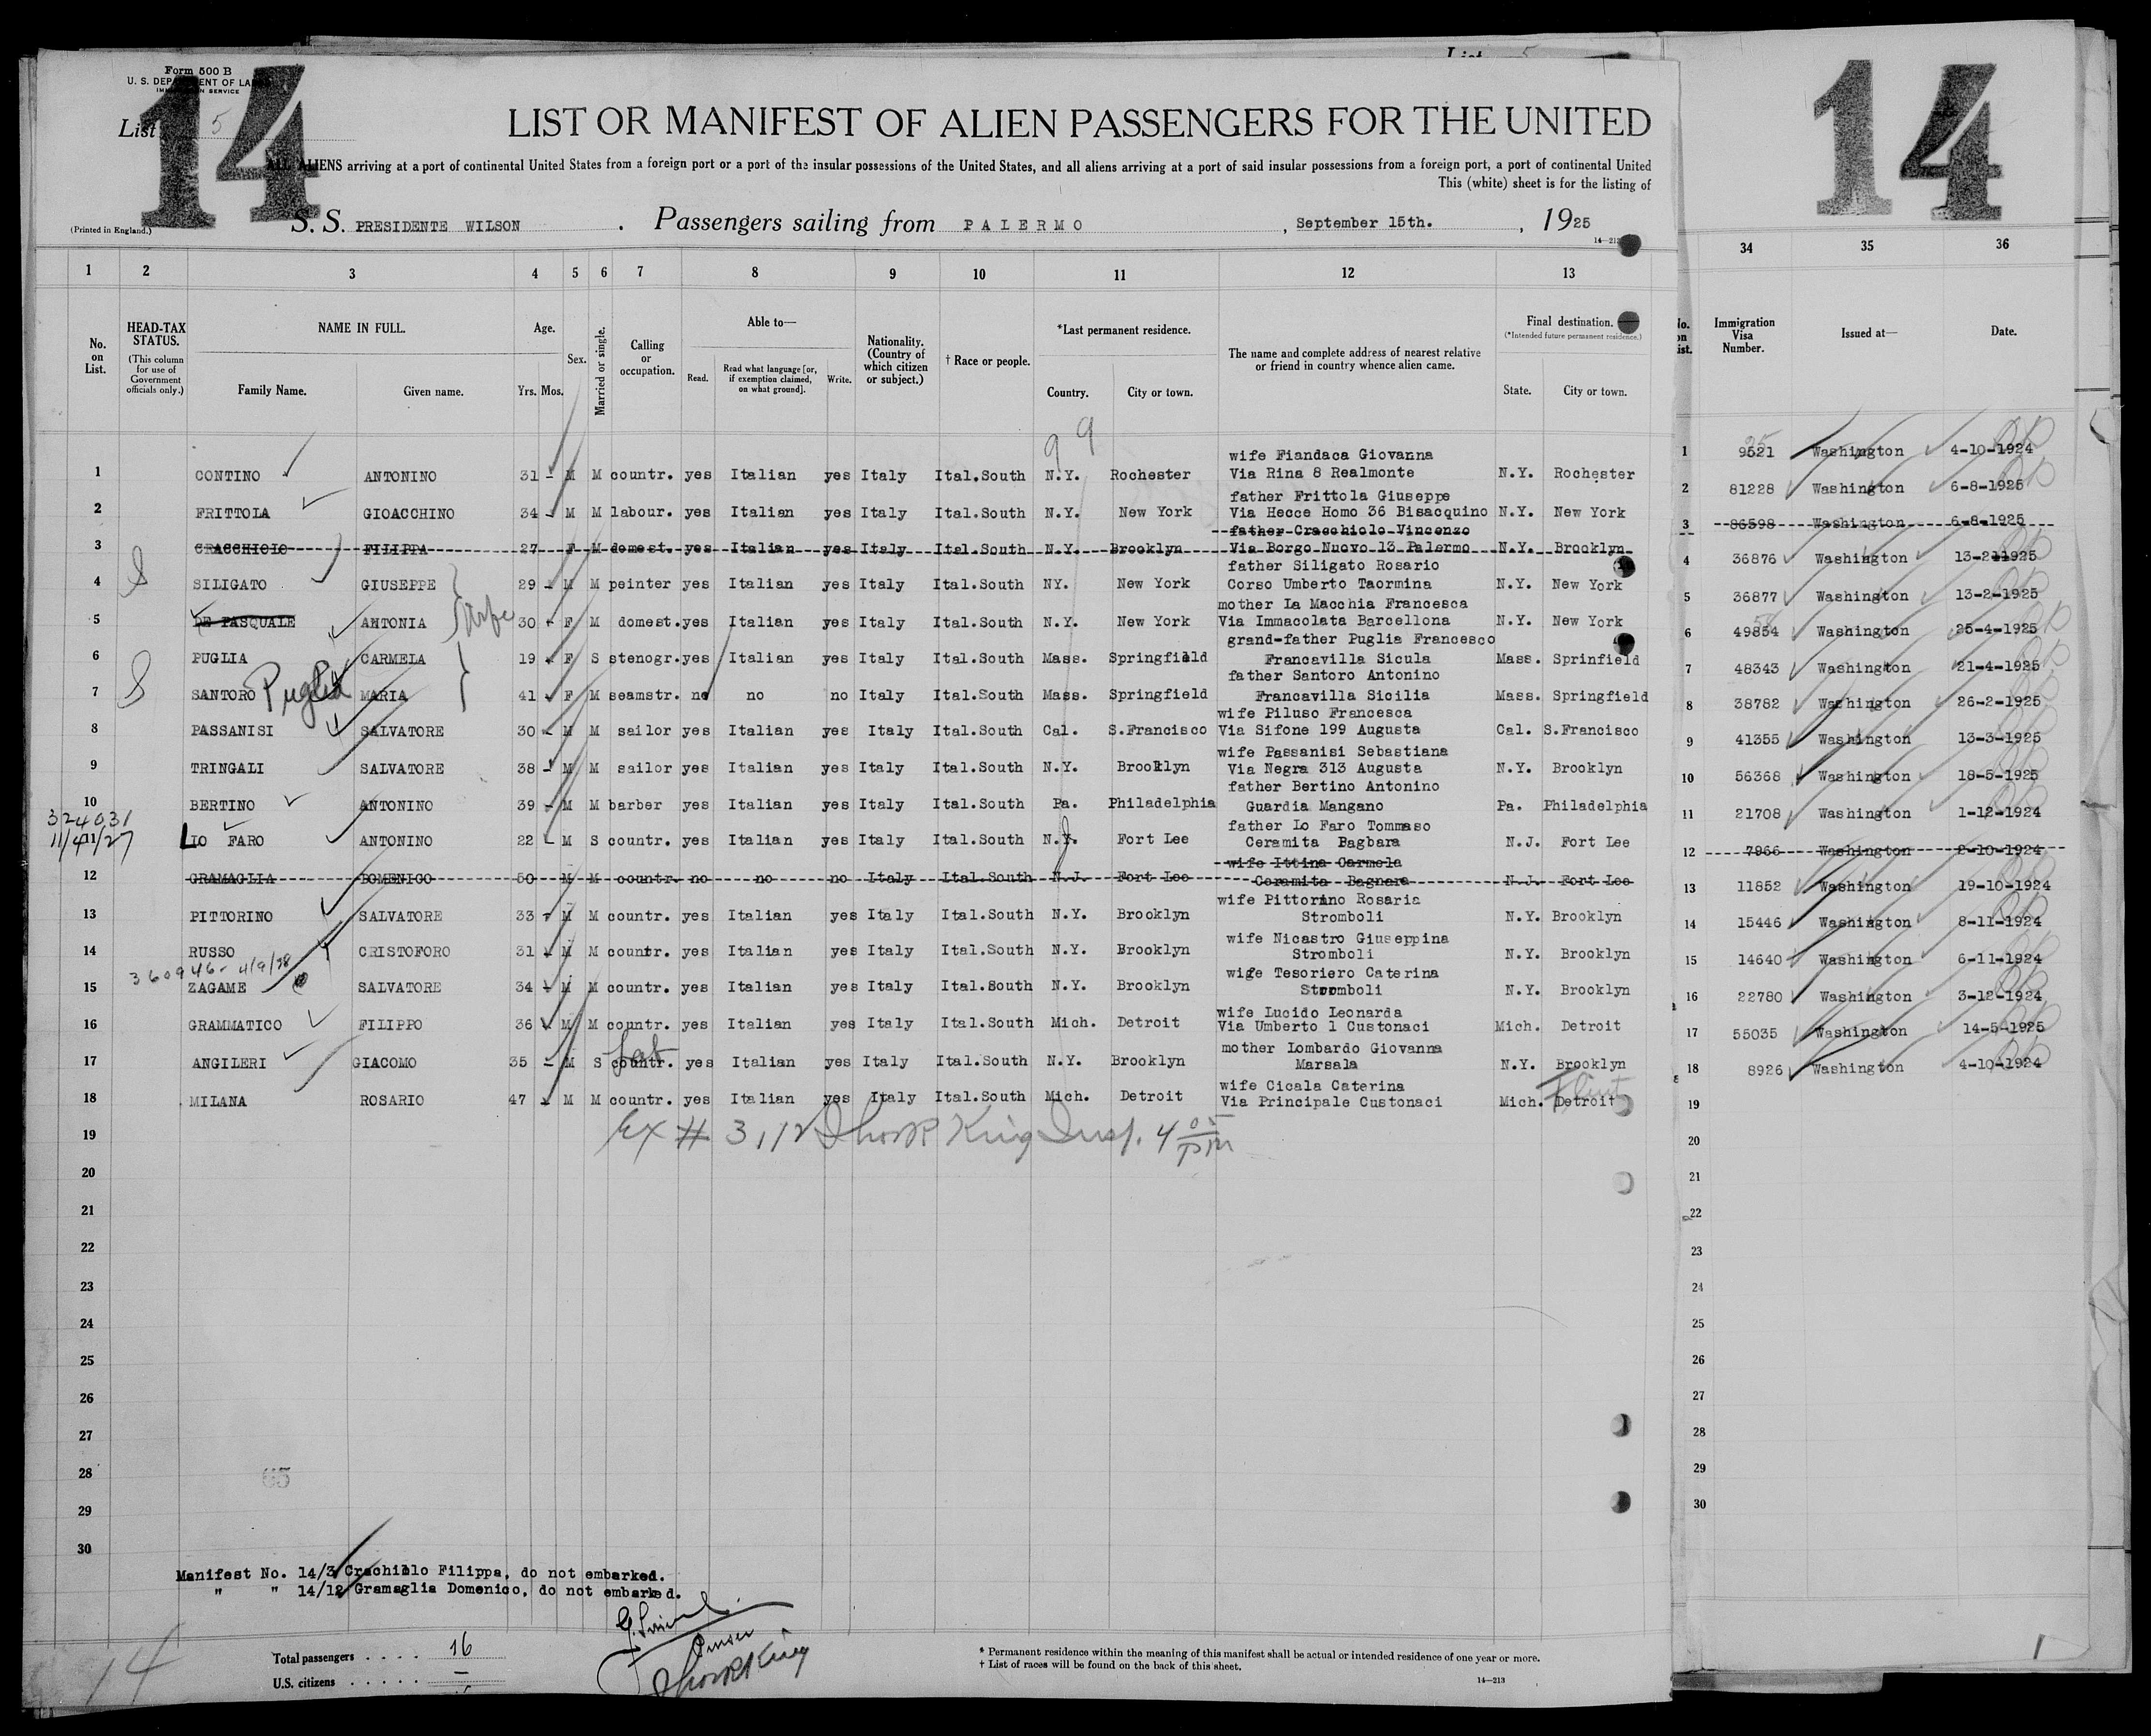 List 5
Form 500 B
U. S. DEPARTMENT OF LABOR
IMMIGRATION SERVICE
14
14
List 5
LIST OR MANIFEST OF ALIEN PASSENGERS FOR THE UNITED
ALL ALIENS arriving at a port of continental United States from a foreign port or a port of the insular possessions of the United States, and all aliens arriving at a port of said insular possessions from a foreign port, a port of continental United
This (white) sheet is for the listing of
(Printed in England.)
S. S. PRESIDENTE WILSON . Passengers sailing from PALERMO , September 15th. , 1925
14—213
1 2 3 4 5 6 7 8 9 10 11 12 13 34 35 36
No. on List.
HEAD-TAX STATUS.
(This column for use of Government officials only.)
NAME IN FULL.
Family Name. Given name.
Age.
Yrs. Mos.
Sex.
Married or single.
Calling or occupation.
Able to—
Read. Read what language [or, if exemption claimed, on what ground]. Write.
Nationality. (Country of which citizen or subject.)
† Race or people.
*Last permanent residence.
Country. City or town.
The name and complete address of nearest relative or friend in country whence alien came.
Final destination.
(*Intended future permanent residence.)
State. City or town.
No. on List.
Immigration Visa Number.
Issued at—
Date.
9 9
wife Fiandaca Giovanna
1 CONTINO ANTONINO 31 - M M countr. yes Italian yes Italy Ital.South N.Y. Rochester Via Rina 8 Realmonte N.Y. Rochester 1 9521 Washington 4-10-1924
father Frittola Giuseppe
2 FRITTOLA GIOACCHINO 34 - M M labour. yes Italian yes Italy Ital.South N.Y. New York Via Hecce Homo 36 Bisacquino N.Y. New York 2 81228 Washington 6-8-1925
father Cracchiolo Vincenzo
3 CRACCHIOLO FILIPPA 27 F M domest. yes Italian yes Italy Ital.South N.Y. Brooklyn Via Borgo Nuovo 13 Palermo N.Y. Brooklyn 3 86598 Washington 6-8-1925
father Siligato Rosario
4 SILIGATO GIUSEPPE 29 - M M peinter yes Italian yes Italy Ital.South NY. New York Corso Umberto Taormina N.Y. New York 4 36876 Washington 13-2-1925
wife
mother La Macchia Francesca
5 DE PASQUALE ANTONIA 30 - F M domest. yes Italian yes Italy Ital.South N.Y. New York Via Immacolata Barcellona N.Y. New York 5 36877 Washington 13-2-1925
grand-father Puglia Francesco
6 PUGLIA CARMELA 19 - F S stenogr. yes Italian yes Italy Ital.South Mass. Springfield Francavilla Sicula Mass. Sprinfield 6 49854 Washington 25-4-1925
father Santoro Antonino
7 SANTORO Puglia MARIA 41 - F M seamstr. no no no Italy Ital.South Mass. Springfield Francavilla Sicilia Mass. Springfield 7 48343 Washington 21-4-1925
wife Piluso Francesca
8 PASSANISI SALVATORE 30 - M M sailor yes Italian yes Italy Ital.South Cal. S.Francisco Via Sifone 199 Augusta Cal. S.Francisco 8 38782 Washington 26-2-1925
wife Passanisi Sebastiana
9 TRINGALI SALVATORE 38 - M M sailor yes Italian yes Italy Ital.South N.Y. Brooklyn Via Negra 313 Augusta N.Y. Brooklyn 9 41355 Washington 13-3-1925
father Bertino Antonino
10 BERTINO ANTONINO 39 - M M barber yes Italian yes Italy Ital.South Pa. Philadelphia Guardia Mangano Pa. Philadelphia 10 56368 Washington 18-5-1925
324031
11/4/27
father Lo Faro Tommaso
11 LO FARO ANTONINO 22 - M S countr. yes Italian yes Italy Ital.South N.J. Fort Lee Ceramita Bagbara N.J. Fort Lee 11 21708 Washington 1-12-1924
wife Ittina Carmela
12 GRAMAGLIA DOMENICO 50 M M countr. no no no Italy Ital.South N.J. Fort Lee Ceramita Bagnara N.J. Fort Lee 12 7966 Washington 2-10-1924
wife Pittorino Rosaria
13 PITTORINO SALVATORE 33 - M M countr. yes Italian yes Italy Ital.South N.Y. Brooklyn Stromboli N.Y. Brooklyn 13 11852 Washington 19-10-1924
wife Nicastro Giuseppina
14 RUSSO CRISTOFORO 31 - M M countr. yes Italian yes Italy Ital.South N.Y. Brooklyn Stromboli N.Y. Brooklyn 14 15446 Washington 8-11-1924
360946 - 4/9/28
wige Tesoriero Caterina
15 ZAGAME SALVATORE 34 - M M countr. yes Italian yes Italy Ital.South N.Y. Brooklyn Stromboli N.Y. Brooklyn 15 14640 Washington 6-11-1924
wife Lucido Leonarda
16 GRAMMATICO FILIPPO 36 - M M countr. yes Italian yes Italy Ital.South Mich. Detroit Via Umberto 1 Custonaci Mich. Detroit 16 22780 Washington 3-12-1924
Lab
mother Lombardo Giovanna
17 ANGILERI GIACOMO 35 - M S countr. yes Italian yes Italy Ital.South N.Y. Brooklyn Marsala N.Y. Brooklyn 17 55035 Washington 14-5-1925
wife Cicala Caterina
18 MILANA ROSARIO 47 - M M countr. yes Italian yes Italy Ital.South Mich. Detroit Via Principale Custonaci Mich. Detroit Flint 18 8926 Washington 4-10-1924
19 Ex # 3,12 King Insp. 4 05 PM 19
20 20
21 21
22 22
23 23
24 24
25 25
26 26
27 27
28 28
65
29 29
30 30
Manifest No. 14/3 Crachiolo Filippa, do not embarked.
" " 14/12 Gramaglia Domenico, do not embarked.
14
Total passengers . . . . 16
U.S. citizens . . . . . —
King
* Permanent residence within the meaning of this manifest shall be actual or intended residence of one year or more.
† List of races will be found on the back of this sheet.
14—213